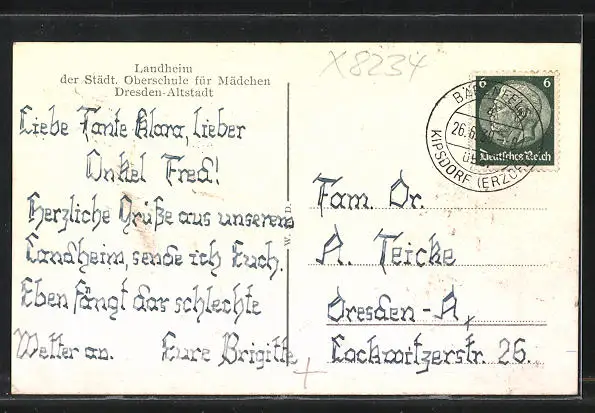 X8234
Landheim
der Städt. Oberschule für Mädchen
Dresden-Altstadt
Liebe Tante Klara, lieber
Onkel Fred!
Herzliche Grüße aus unserem
Landheim, sende ich Euch.
Eben fängt das schlechte
Wetter an. Eure Brigitte
6 6
Deutsches Reich
BÄRENFELS
26.6.
über
KIPSDORF (ERZGEB)
Fam. Dr.
A. Teicke
Dresden-A,
Lockwitzerstr. 26.